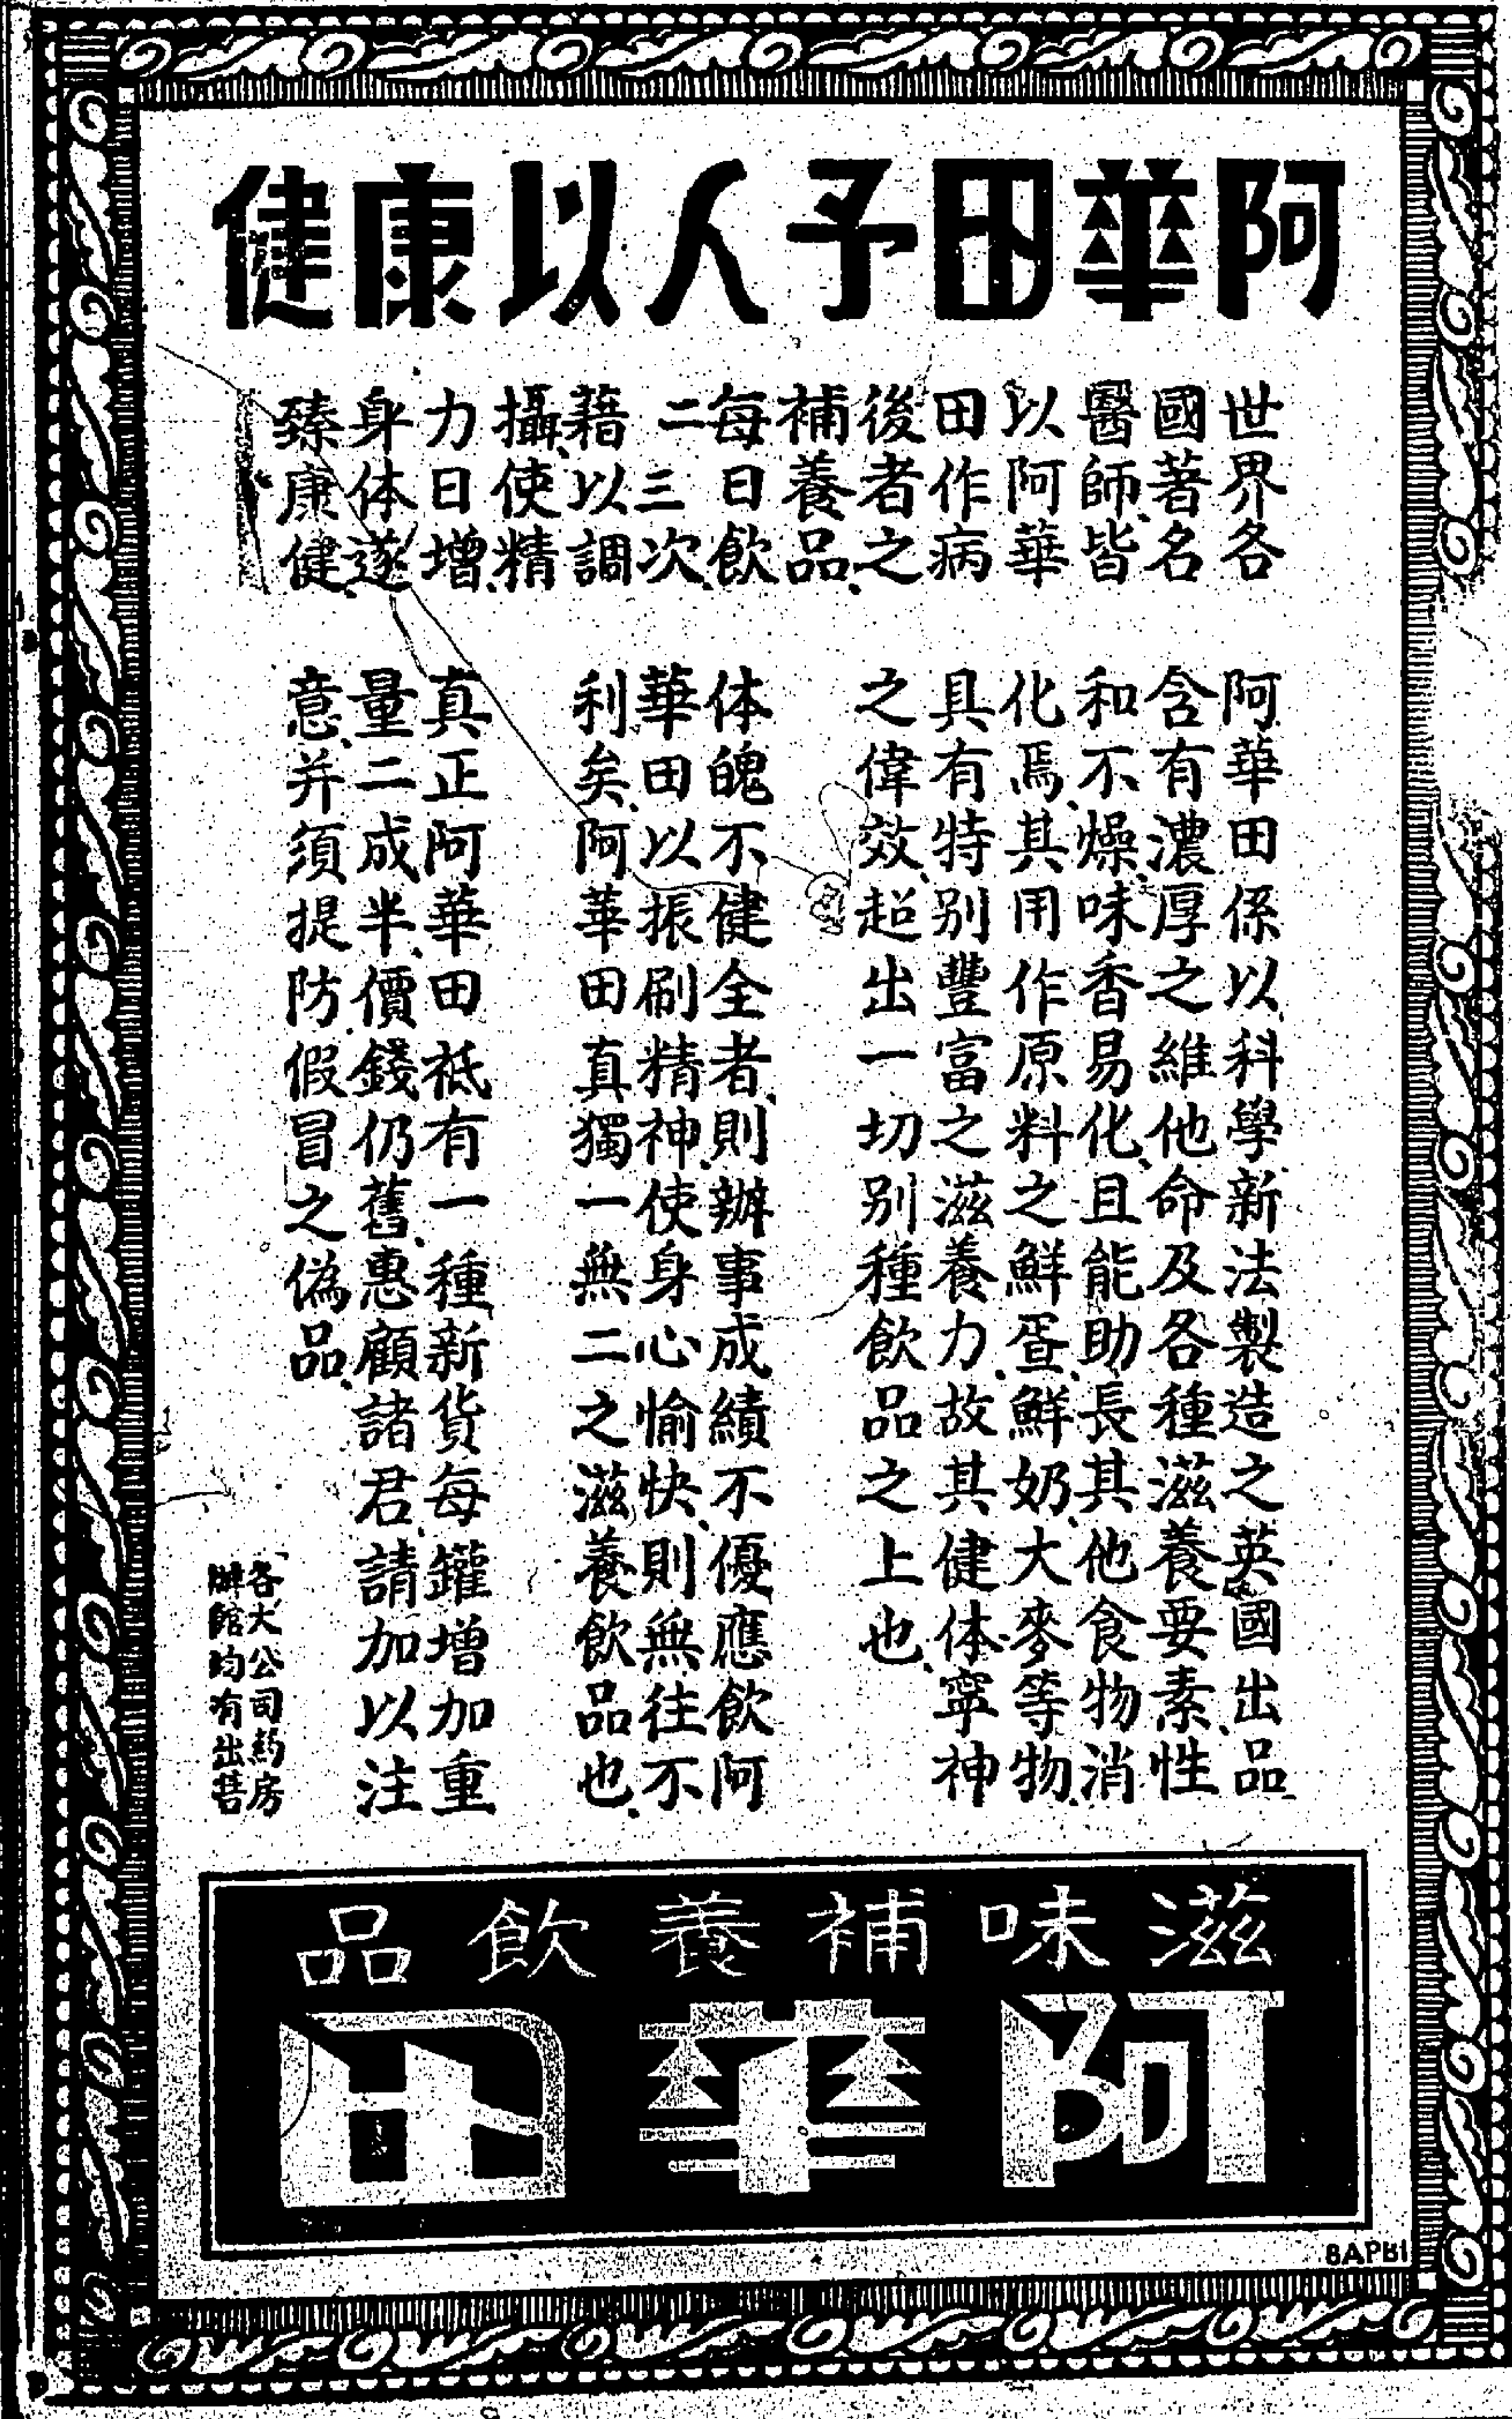 阿華田予人以康健
世界各
國著名
醫師、皆
以阿華
田作病
後者之
補養品、
每日飲
二三次、
藉以調
攝、使精
力日增、
身体遂
臻康健、
阿華田係以科學新法製造之英國出品
含有濃厚之維他命及各種滋養要素、性
和不燥、味香易化、且能助長其他食物消
化焉、其用作原料之鮮蛋、鮮奶、大麥等物、
具有特别豐富之滋養力、故其健体寧神
之偉效、超出一切别種飲品之上也、
体魄不健全者、則辦事成績不優、應飲阿
華田以振刷精神、使身心愉快、則無往不
利矣、阿華田真獨一無二之滋養飲品也、
真正阿華田祗有一種、新貨每罐增加重
量二成半、價錢仍舊、惠顧諸君、請加以注
意、并須提防假冒之偽品、
各大公司藥房
辦館均有出售
滋味補養飲品
阿華田
8APB1